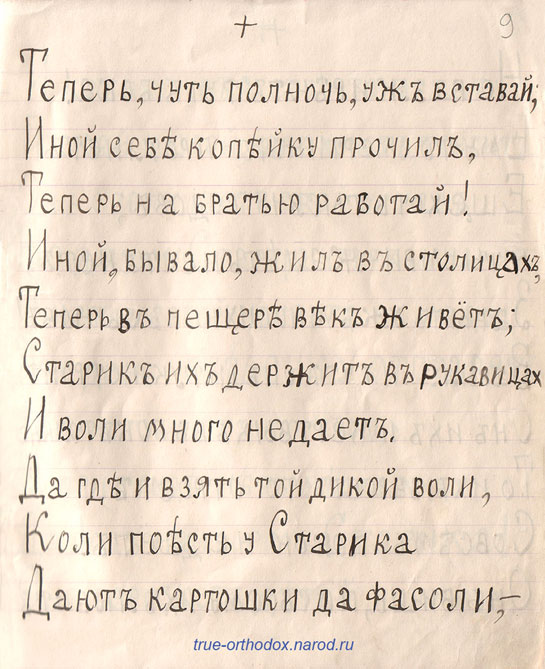 + 9
Теперь, чуть полночь, ужъ вставай;
Иной себѣ копѣйку прочилъ,
Теперь на братью работай!
Иной, бывало, жилъ въ столицахъ,
Теперь въ пещерѣ вѣкъ живётъ;
Старикъ ихъ держитъ въ рукавицах
И воли много недаетъ.
Да гдѣ и взять той дикой воли,
Коли поѣсть у Старика
Даютъ картошки да фасоли,—
true-orthodox.narod.ru